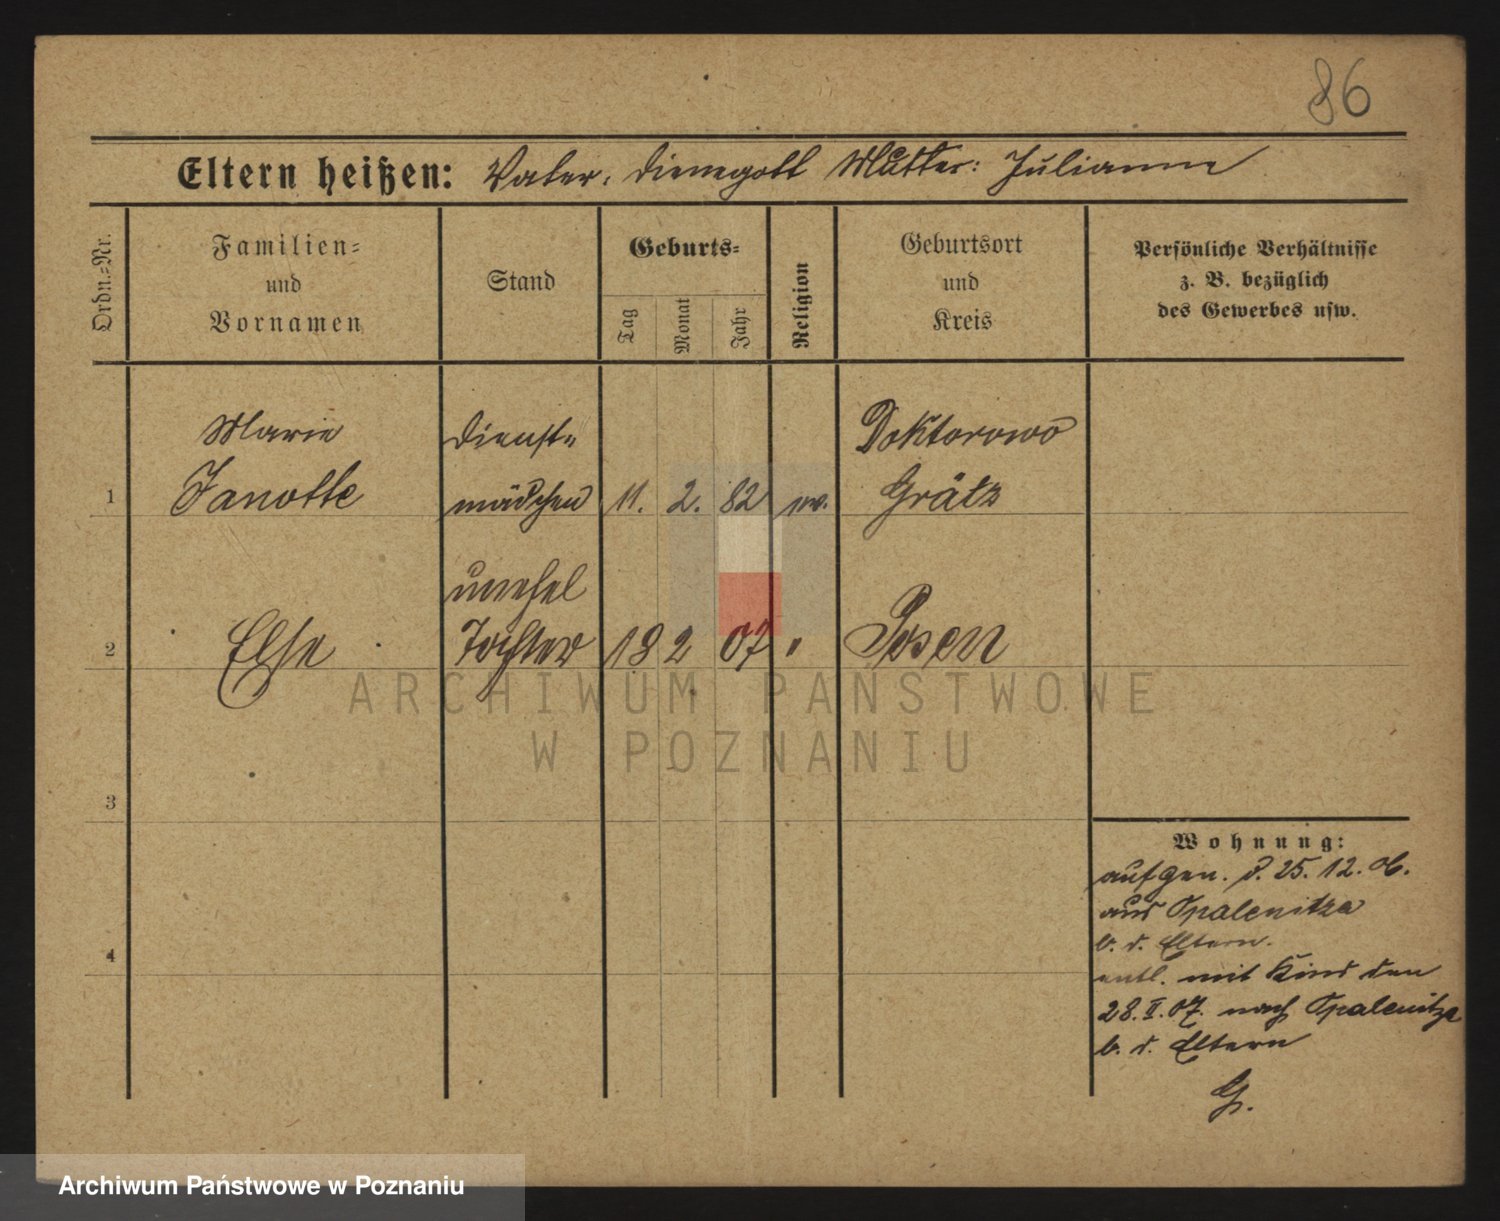 86
Eltern heißen: Vater: Dienegott Mutter: Julianne
Ordn.-Nr.
Familien-
und
Vornamen
Stand
Geburts-
Tag
Monat
Jahr
Religion
Geburtsort
und
Kreis
Persönliche Verhältnisse
z. B. bezüglich
des Gewerbes usw.
Marie Dienst- Doktorowo
1 Janotte mädchen 11. 2. 82 ev. Grätz
unehel
2 Else Tochter 18 2 07 " Posen
3
4
Wohnung:
aufgen. d. 25. 12. 06.
aus Opalenitza
b. d. Eltern.
entl. mit Kind den
28. II. 07. nach Opalenitza
b. d. Eltern
G.
ARCHIWUM PAŃSTWOWE
W POZNANIU
Archiwum Państwowe w Poznaniu